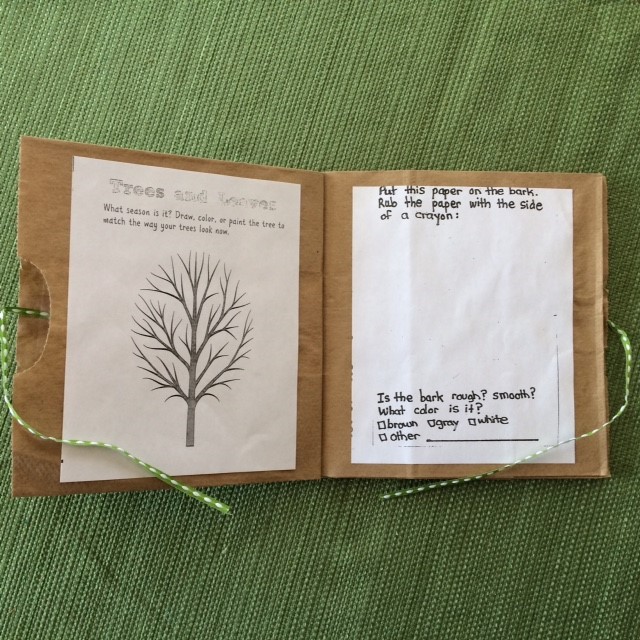 Trees and Leaves
What season is it? Draw, color, or paint the tree to
match the way your trees look now.
Put this paper on the bark.
Rub the paper with the side
of a crayon:
Is the bark rough? smooth?
What color is it?
□brown □gray □white
□other